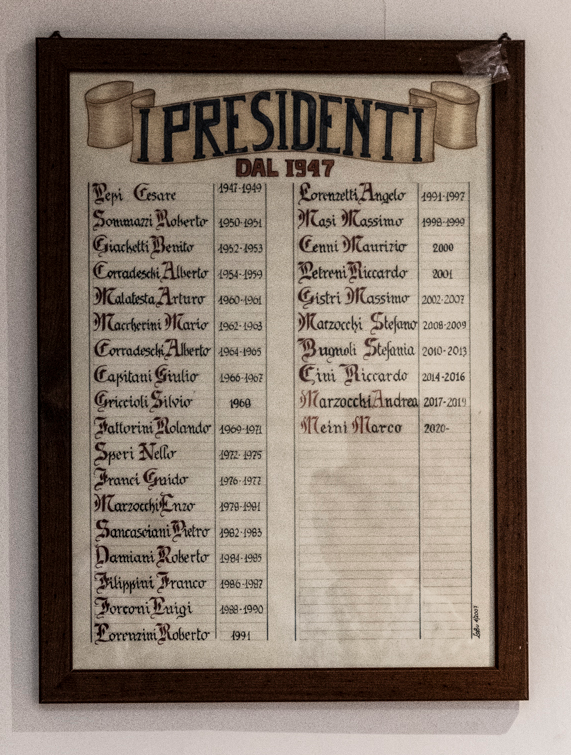 I PRESIDENTI
DAL 1947
Pepi Cesare 1947-1949
Sommazzi Roberto 1950-1951
Giachetti Benito 1952-1953
Corradeschi Alberto 1954-1959
Malatesta Arturo 1960-1961
Maccherini Mario 1962-1963
Corradeschi Alberto 1964-1965
Capitani Giulio 1966-1967
Griccioli Silvio 1968
Fattorini Rolando 1969-1971
Speri Nello 1972-1975
Franci Guido 1976-1977
Marzocchi Enzo 1978-1981
Sancasciani Pietro 1982-1983
Damiani Roberto 1984-1985
Filippini Franco 1986-1987
Forconi Luigi 1988-1990
Lorenzini Roberto 1991
Lorenzetti Angelo 1991-1997
Masi Massimo 1998-1999
Cenni Maurizio 2000
Petreni Riccardo 2001
Gistri Massimo 2002-2007
Marzocchi Stefano 2008-2009
Bugnoli Stefania 2010-2013
Cini Riccardo 2014-2016
Marzocchi Andrea 2017-2019
Meini Marco 2020-